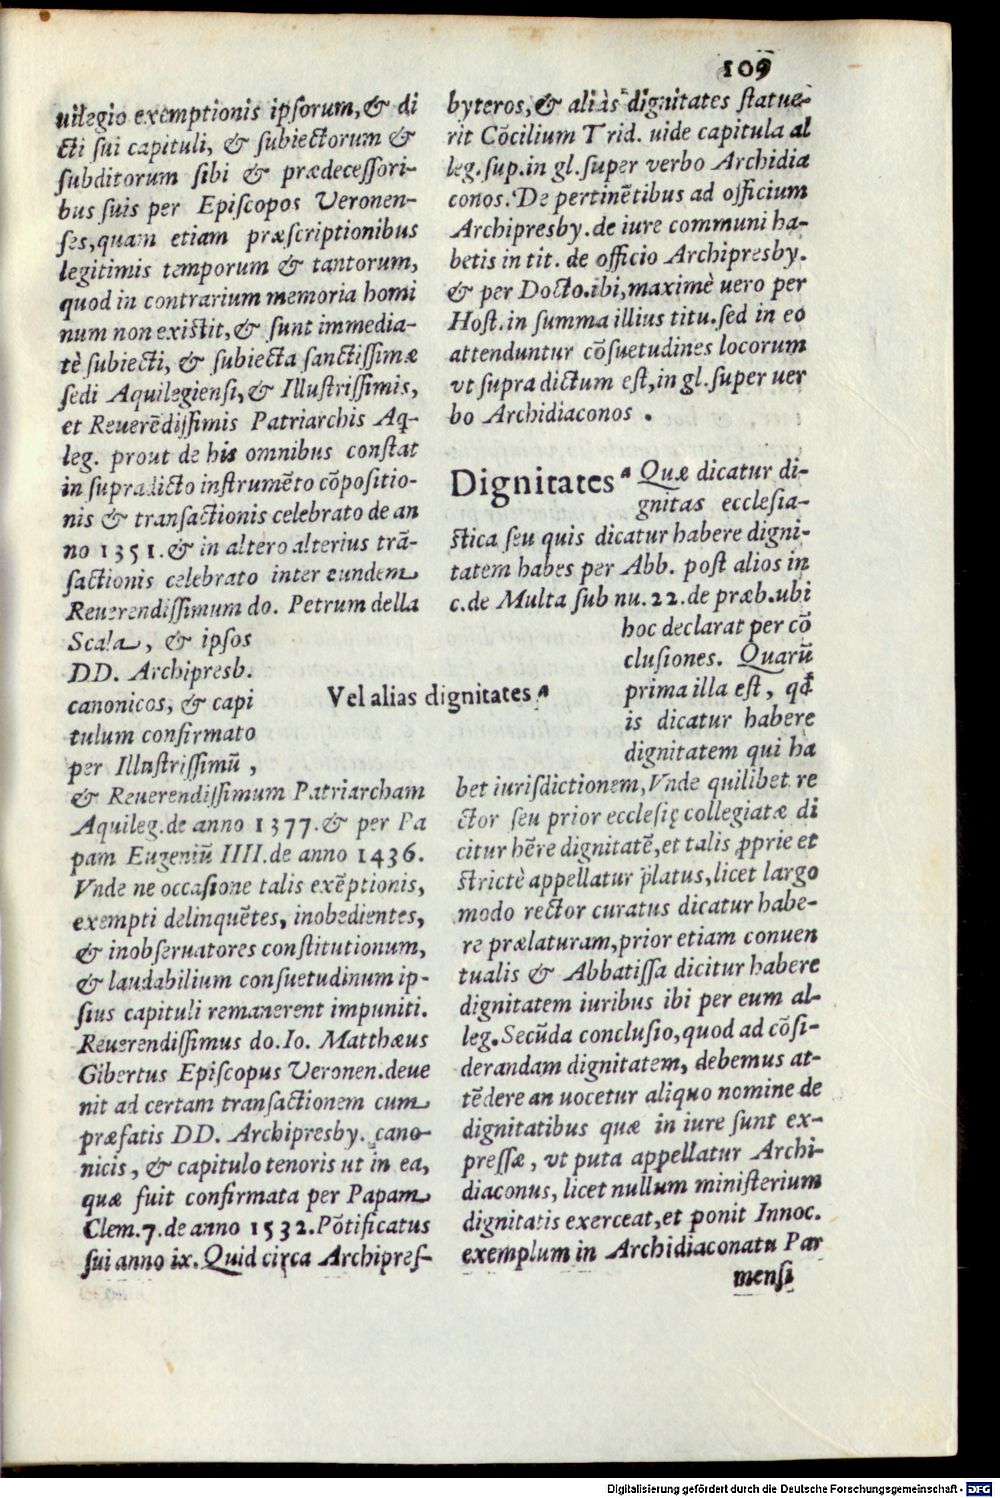 109
uilegio exemptionis ipsorum, & di
cti sui capituli, & subiectorum &
subditorum sibi & prædecessori-
bus suis per Episcopos Veronen-
ses, quam etiam præscriptionibus
legitimis temporum & tantorum,
quod in contrarium memoria homi
num non existit, & sunt immedia-
tè subiecti, & subiecta sanctissimæ
sedi Aquilegiensi, & Illustrissimis,
et Reuerēdissimis Patriarchis Aq-
leg. prout de his omnibus constat
in supradicto instrumēto cōpositio-
nis & transactionis celebrato de an
no 1351. & in altero alterius trā-
sactionis celebrato inter eundem
Reuerendissimum do. Petrum della
Scala, & ipsos
DD. Archipresb.
canonicos, & capi
tulum confirmato
per Illustrissimū,
& Reuerendissimum Patriarcham
Aquileg. de anno 1377. & per Pa
pam Eugeniū IIII. de anno 1436.
Vnde ne occasione talis exēptionis,
exempti delinquētes, inobedientes,
& inobseruatores constitutionum,
& laudabilium consuetudinum ip-
sius capituli remanerent impuniti.
Reuerendissimus do. Io. Matthæus
Gibertus Episcopus Veronen. deue
nit ad certam transactionem cum
præfatis DD. Archipresby. cano-
nicis, & capitulo tenoris ut in ea,
quæ fuit confirmata per Papam
Clem. 7. de anno 1532. Pōtificatus
sui anno ix. Quid circa Archipres-
Vel alias dignitates
byteros, & aliàs dignitates statue-
rit Cōcilium Trid. uide capitula al
leg. sup. in gl. super verbo Archidia
conos. De pertinētibus ad officium
Archipresby. de iure communi ha-
betis in tit. de officio Archipresby.
& per Docto. ibi, maximè uero per
Host. in summa illius titu. sed in eo
attenduntur cōsuetudines locorum
vt supra dictum est, in gl. super uer
bo Archidiaconos.
Dignitates Quæ dicatur di-
gnitas ecclesia-
stica seu quis dicatur habere digni-
tatem habes per Abb. post alios in
c. de Multa sub nu. 22. de præb. ubi
hoc declarat per cō
clusiones. Quarū
prima illa est, qđ
is dicatur habere
dignitatem qui ha
bet iurisdictionem, Vnde quilibet re
ctor seu prior ecclesię collegiatæ di
citur hēre dignitatē, et talis ꝓprie et
strictè appellatur p̄latus, licet largo
modo rector curatus dicatur habe-
re prælaturam, prior etiam conuen
tualis & Abbatissa dicitur habere
dignitatem iuribus ibi per eum al-
leg. Secūda conclusio, quod ad cōsi-
derandam dignitatem, debemus at-
tēdere an uocetur aliquo nomine de
dignitatibus quæ in iure sunt ex-
pressæ, vt puta appellatur Archi-
diaconus, licet nullum ministerium
dignitatis exerceat, et ponit Innoc.
exemplum in Archidiaconatu Par
mensi
Digitalisierung gefördert durch die Deutsche Forschungsgemeinschaft - DFG